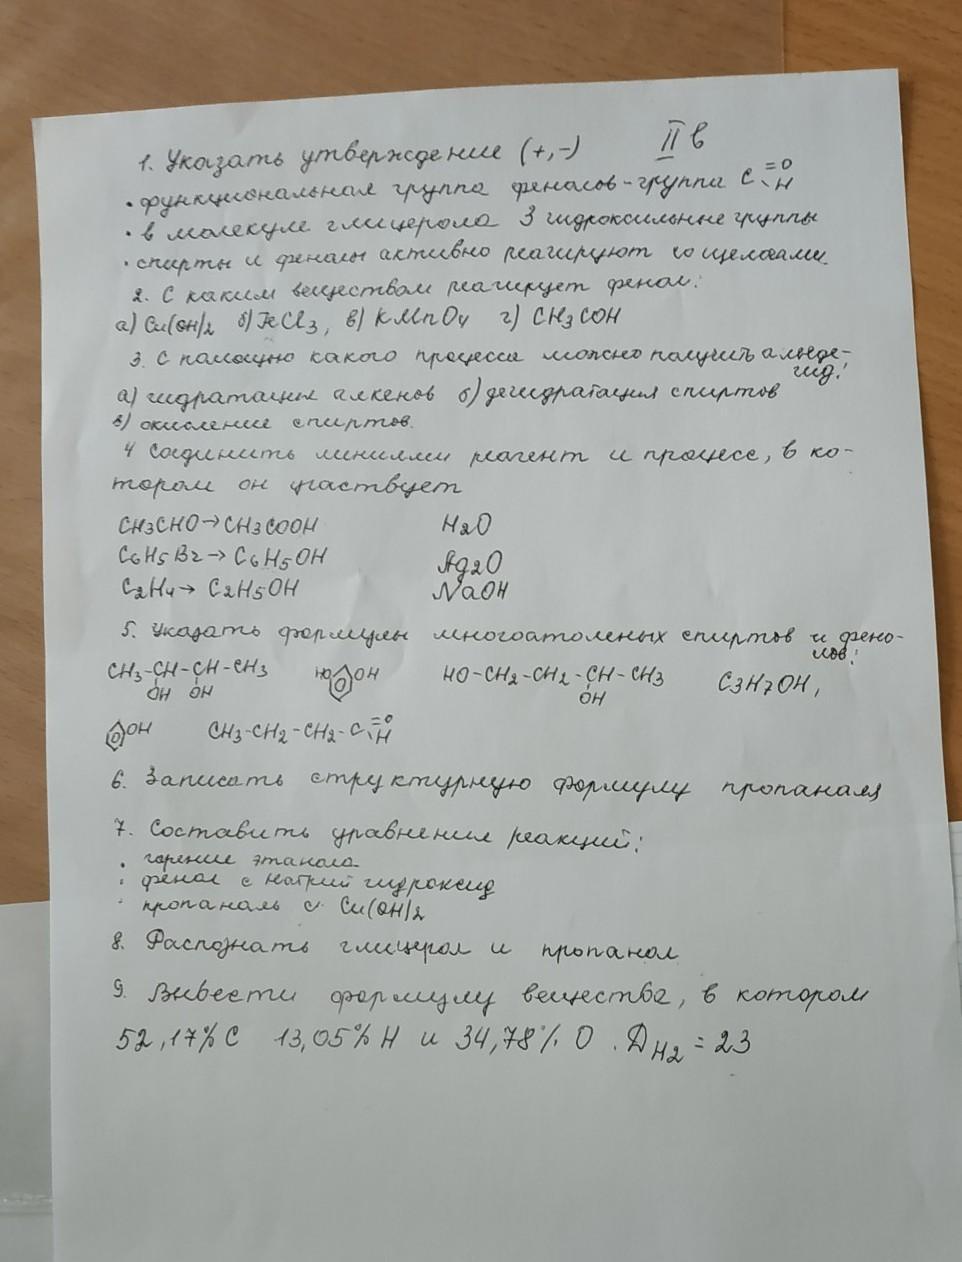 1. Указать утверждение (+,-) II в
• функциональная группа фенолов-группа C =O -H
• в молекуле глицерола 3 гидроксильные группы
• спирты и фенолы активно реагируют со щелочами
2. С каким веществом реагирует фенол:
а) Cu(OH)2 б) FeCl3, в) KMnO4 г) CH3COH
3. С помощью какого процесса можно получить альде-
гид:
а) гидратация алкенов б) дегидратация спиртов
в) окисление спиртов.
4 Соединить линиями реагент и процесс, в ко-
тором он участвует
CH3CHO→CH3COOH H2O
C6H5Br→C6H5OH Ag2O
C2H4→C2H5OH NaOH
5. Указать формулы многоатомных спиртов и фено-
лов:
CH3-CH-CH-CH3 HO OH HO-CH2-CH2-CH-CH3 C3H7OH,
OH OH OH
OH CH3-CH2-CH2-C =O -H
6. Записать структурную формулу пропаналя
7. Составить уравнения реакций:
• горение этанола
• фенол с натрий гидроксид
• пропаналь с Cu(OH)2
8. Распознать глицерол и пропанол
9. Вывести формулу вещества, в котором
52,17% C 13,05% H и 34,78% O. DH2 = 23